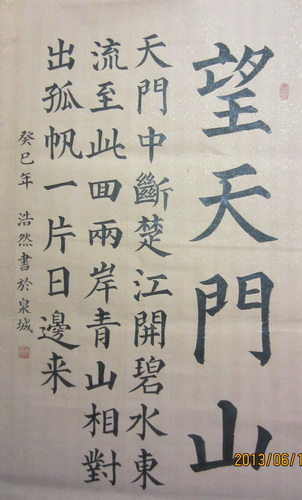 望天門山
天門中斷楚江開碧水東
流至此回兩岸青山相對
出孤帆一片日邊来
癸巳年 浩然書於泉城
2013/06/1